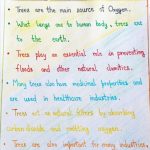 • Trees are the main source of Oxygen.
• What lungs are to human body, trees are
to the earth.
• Trees play an essential role in preventing
floods and other natural clamities.
• Many trees also have medicinal properties and
are used in healthcare industries.
• Trees act as natural filters by absorbing
carbon dioxide and emitting oxygen.
• Trees are also important for many industries,